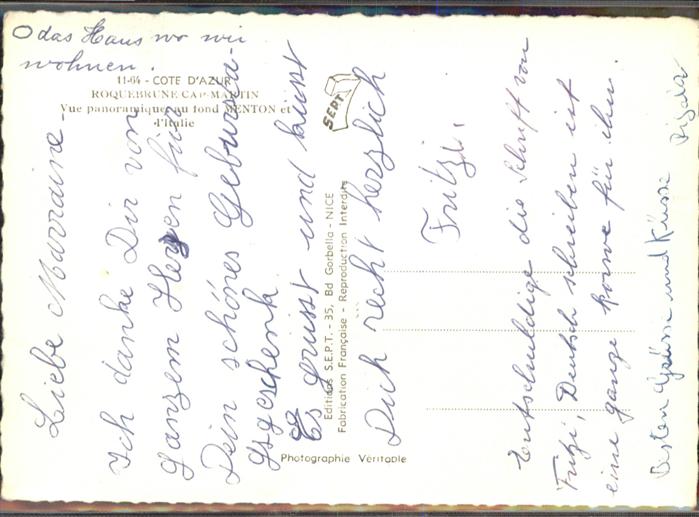 O das Haus wo wir
wohnen.
11-64 - COTE D'AZUR
ROQUEBRUNE CAP-MARTIN
Vue panoramique au fond MENTON et
l'Italie
SEPT
Liebe Marraine
Ich danke Dir von
ganzem Herzen für
Dein schönes Geburtsta-
gsgeschenk
Es grüsst und küsst
Dich recht herzlich
Fritzi.
Editions S.E.P.T. - 35, Bd Gorbella - NICE
Fabrication Française - Reproduction Interdite
Photographie Véritable
Entschuldige die Schrift von
Fritzi, Deutsch schreiben ist
eine ganze corvée für ihn.
Besten Grüsse und Küsse